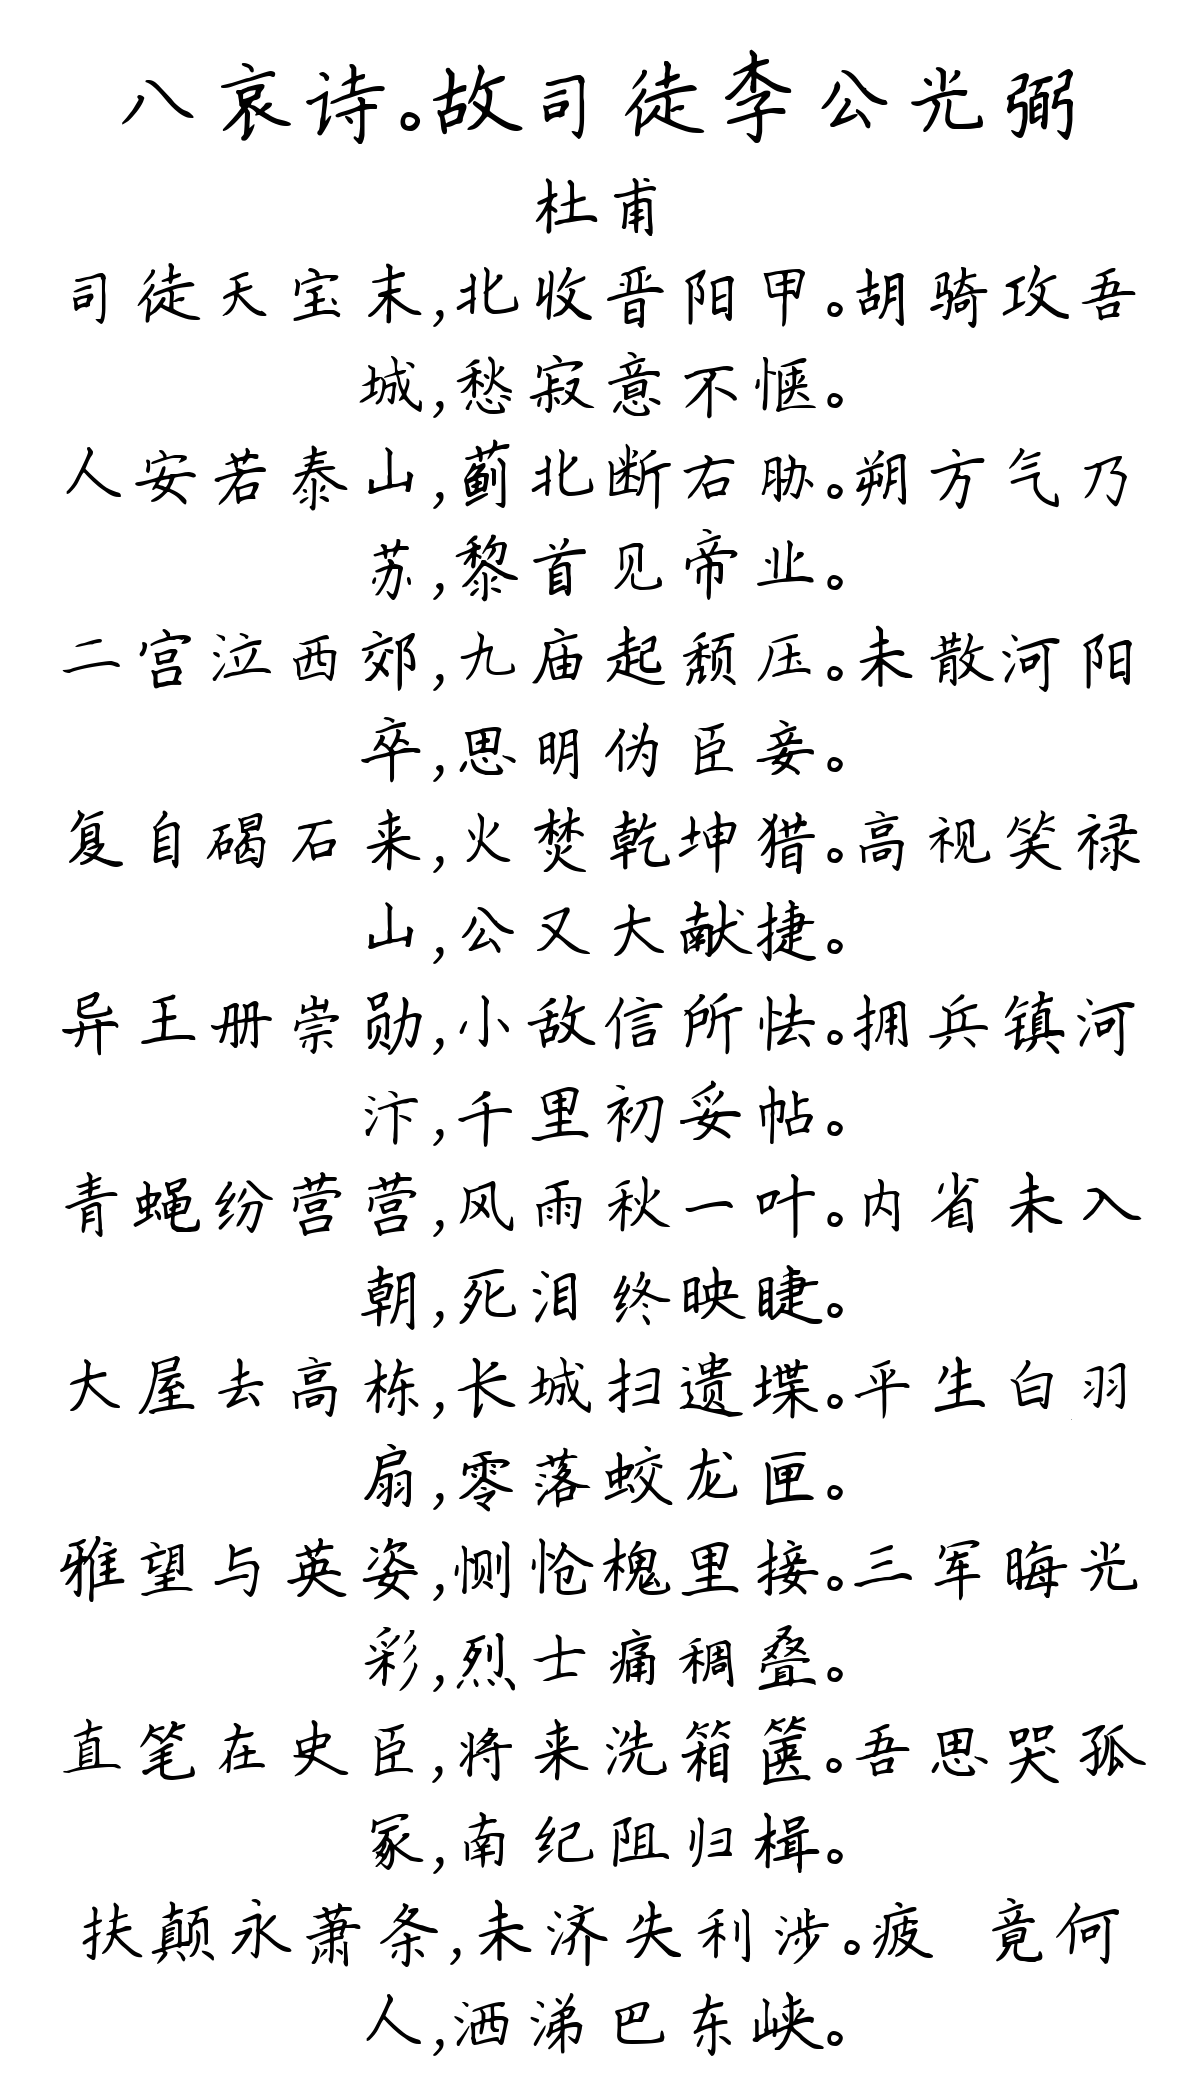 八哀诗。故司徒李公光弼
杜甫
司徒天宝末,北收晋阳甲。胡骑攻吾
城,愁寂意不惬。
人安若泰山,蓟北断右胁。朔方气乃
苏,黎首见帝业。
二宫泣西郊,九庙起颓压。未散河阳
卒,思明伪臣妾。
复自碣石来,火焚乾坤猎。高视笑禄
山,公又大献捷。
异王册崇勋,小敌信所怯。拥兵镇河
汴,千里初妥帖。
青蝇纷营营,风雨秋一叶。内省未入
朝,死泪终映睫。
大屋去高栋,长城扫遗堞。平生白羽
扇,零落蛟龙匣。
雅望与英姿,恻怆槐里接。三军晦光
彩,烈士痛稠叠。
直笔在史臣,将来洗箱箧。吾思哭孤
冢,南纪阻归楫。
扶颠永萧条,未济失利涉。疲 竟何
人,洒涕巴东峡。